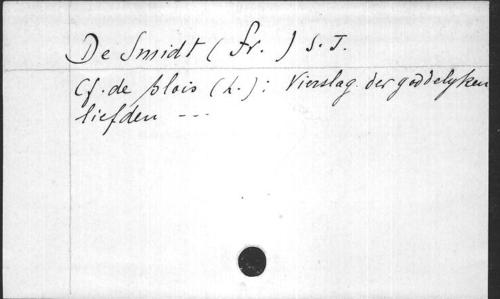 De Smidt ( Fr. ) S. J.
Cf. de blois ( L. ) : Vierslag der goddelyken
liefden ---